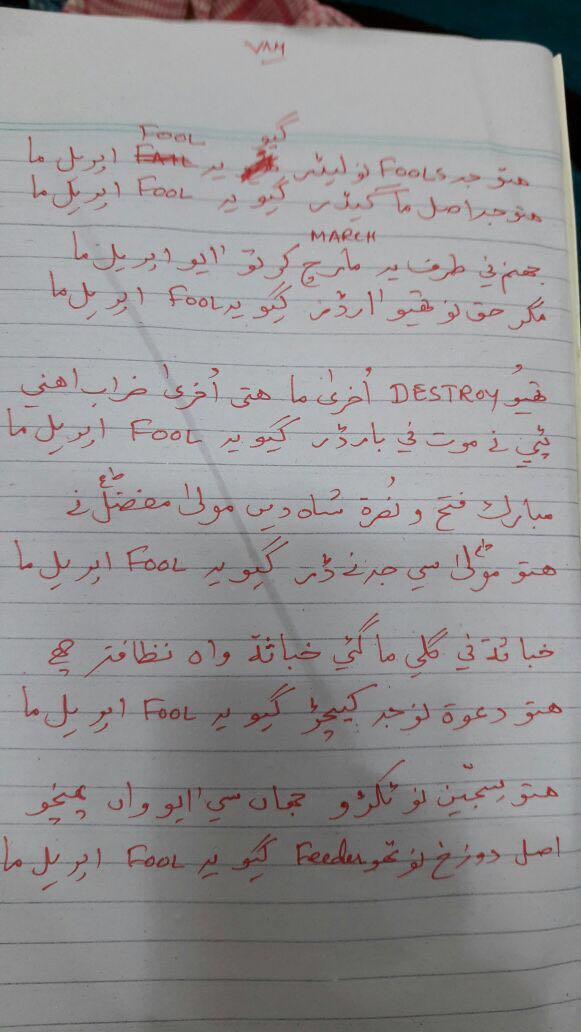 VAH
هتو جہ FOOLS نو لیڈر گیو یہ FOOL اپریل ما
هتو جہ اصل ما گیڈر گیو یہ FOOL اپریل ما
جهنم ني طرف یہ مارچ MARCH کر تو اٰیو اپریل ما
مگر حق نو تھیو اٰرڈر گیو یہ FOOL اپریل ما
تھیوُ DESTROY اُخریٰ ما هتی اُخریٰ خراب اهني
ٹپي نے موت ني بارڈر گیو یہ FOOL اپریل ما
مبارك فتح و نُصرة شاہ دیں مولیٰ مفضل ؑطع نے
هتو مولیٰ ؑطع سي جہ نے ڈر گیو یہ FOOL اپریل ما
خباثة ني گلي ما گئي خباثة واہ نظافة چھے
هتو دعوة نو جہ کیچڑ گیو یہ FOOL اپریل ما
هتو سِجّین نو ٹکڑو جهاں سي اٰیو واں پهنچو
اصل دوزخ نو تھو Feeder گیو یہ FOOL اپریل ما